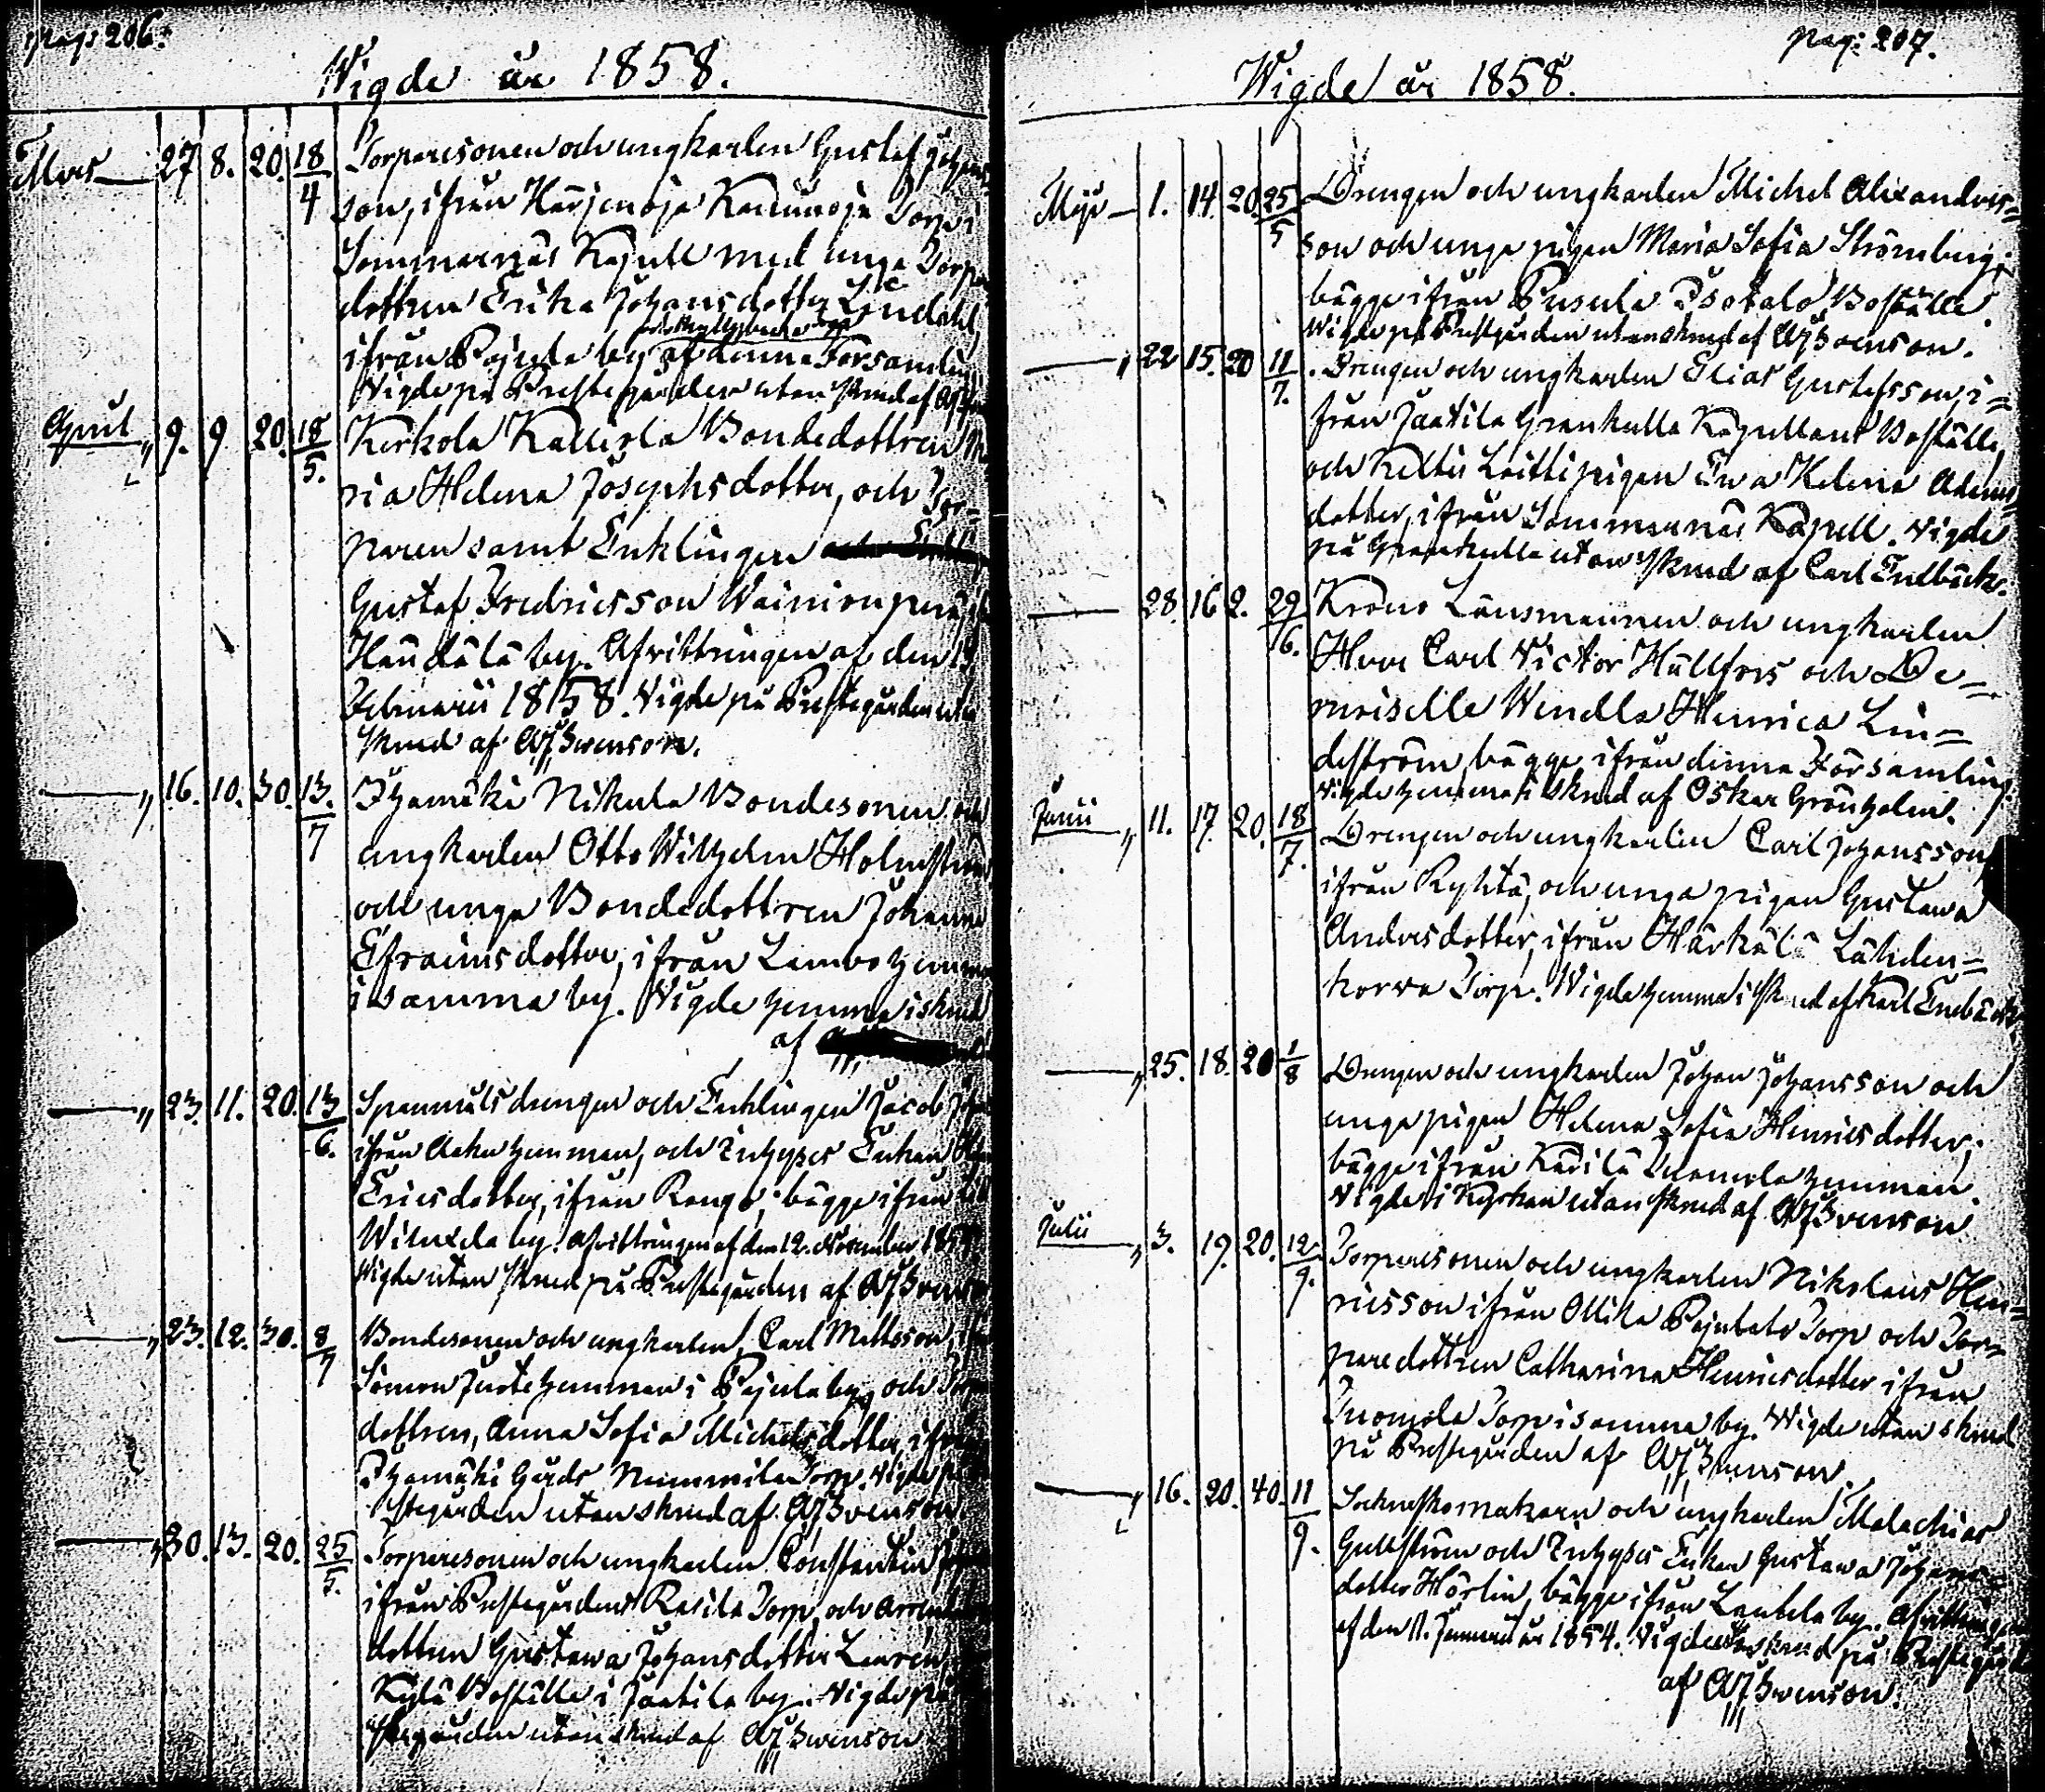 pag: 206.
Wigde år 1858.
Mars 27 8. 20. 18/4 Torparesonen och ungkarlen Gustaf Johans
son, ifrån Härjenoja Torp i
Sommarnäs Kapell med unga Torpare
dottren Erika Johansdotter Lindahl,
ifrån Pajula by af denna Församling
Wigde på Prestegården utan skrud af
April 9. 9 20. 18/5. Kerkola Kallerla Bondedottren Ma
ria Helena Josephsdotter, och Tor-
paren samt Enklingen
Gustaf Fredricsson Wainionpää
by. Afvittringen af den 19
Februarii 1858. Wigde på Prestegården utan
skrud af AJ Swenson.
16. 10. 30. 13./7 Ihamäki Nikula Bondesonen och
ungkarlen Otto Wilhelm Holmström
och unga Bondedottren Johanna
Efraimsdotter, ifrån hemman
i samma by. Wigde hemma i skrud
af
23. 11. 20. 13/6. Spanmålsdrengen och Enklingen Jacob
ifrån hemman, och Inhyses Enkan
Ericsdotter, ifrån bägge ifrån
by. Afvittringen af den 12. November
Wigde utan skrud på Prestegården af AJ Swenson
23. 12. 30. 8/7 Bondesonen och ungkarlen, Carl Mattsson,
Simon hemman i Pajula by och Torpare
dottren, Anna Sofia Michelsdotter, ifrån
Ihamäki Gårds Nummila Torp. Wigde på
stegården utan skrud af AJ Swenson
30. 13. 20. 25/5. Torparesonen och ungkarlen Constantin
ifrån Prestegårdens Torp, och
dottren Gustawa Johansdotter
Kylä Boställe i Jaatila by. Wigde på
stegården utan skrud af AJ Swenson
pag: 207.
Wigde år 1858.
Maji 1. 14. 20. 25/5 Drengen och ungkarlen Michel Alexanders=
son och unga pigan Maria Sofia Strömberg,
bägge ifrån Pusula Isotalo Boställe.
Wigde på Prestgården utan skrud af AJ Swenson.
22 15. 20 11/7. Drengen och ungkarlen Elias Gustafsson, i=
från Jaatila Grankulla Kapellans Boställe,
och pigan Eva Helena Adams
dotter, ifrån Sammarnäs Kapell. Wigde
på Grankulla utan skrud af Carl Enebäck.
28. 16 2. 29/6. Krono Länsmannen och ungkarlen
Herr Carl Victor Hällfors och De=
moiselle Wendla Henrica Lin=
deström, bägge ifrån denna Församling.
Wigde hemma i skrud af Oskar Grönholm.
Junii 11. 17. 20. 18/7. Drengen och ungkarlen Carl Johansson,
ifrån Ryhtä, och unga pigan Gustawa
Andersdotter, ifrån Härkälä Lähden=
korva Torp. Wigde hemma i skrud af Karl Enebäck.
25. 18. 20 1/8 Drengen och ungkarlen Johan Johansson och
unga pigan Helena Sofia Henricsdotter,
bägge ifrån Kärilä hemman.
Wigde i Kyrkan utan skrud af AJ Swenson
Julii 3. 19. 20. 12/9. Torparesonen och ungkarlen Nikolaus Hen=
ricsson ifrån Ollila Torp och Tor=
paredottren Catharina Henricsdotter ifrån
Tuomola Torp i samma by. Wigde utan skrud
på Prestegården af AJ Swenson.
16. 20. 40. 11/9. Sockneskomakaren och ungkarlen Malachias
Gullström och Inhyses Enkan Gustawa Johans=
dotter Hörlin, bägge ifrån by. Afvittringen
af den 11. Januarii år 1854. Wigde utan skrud på Prestegården
af AJ Swenson.